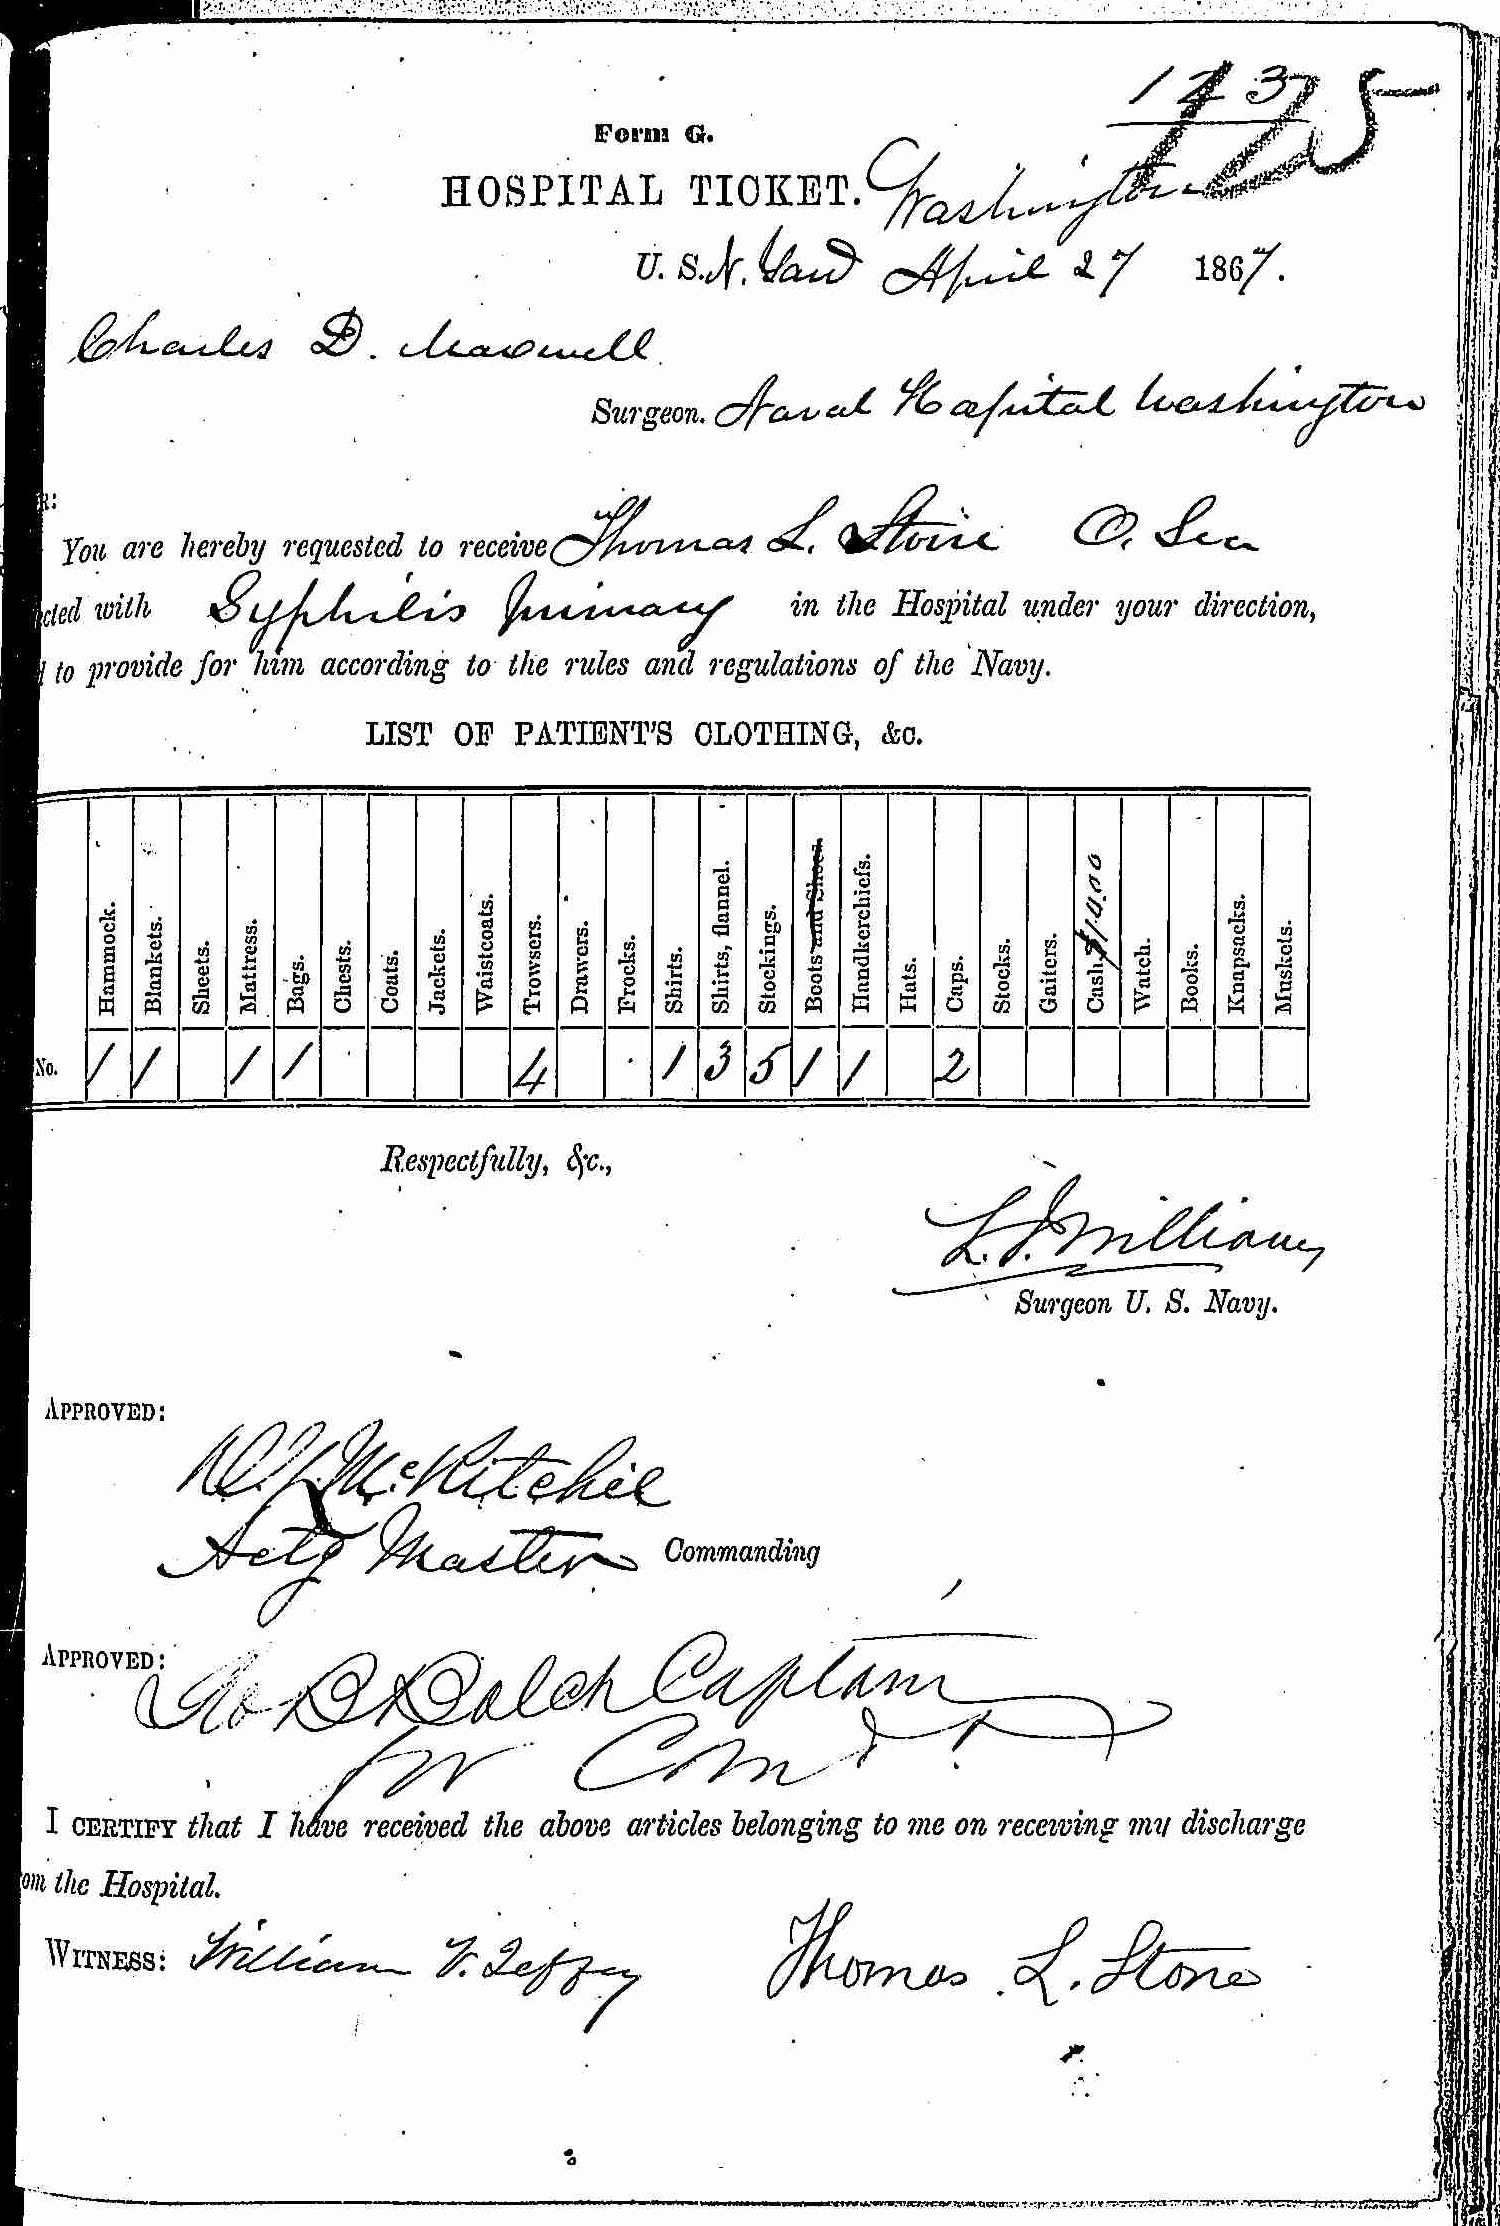 123
125
Form G.
HOSPITAL TICKET. Washington
U. S. N. Yard April 27 1867.
Charles D. Maxwell
Surgeon. Naval Hospital Washington
R:
You are hereby requested to receive Thomas L. Stone O. Sea
cted with Syphilis Primary in the Hospital under your direction,
d to provide for him according to the rules and regulations of the Navy.
LIST OF PATIENT'S CLOTHING, &c.
Hammock. Blankets. Sheets. Mattress. Bags. Chests. Coats. Jackets. Waistcoats. Trowsers. Drawers. Frocks. Shirts. Shirts, flannel. Stockings. Boots and Shoes. Handkerchiefs. Hats. Caps. Stocks. Gaiters. Cash. $14.00 Watch. Books. Knapsacks. Muskets.
No. 1 1 1 1 4 1 3 5 1 1 2
Respectfully, &c.,
L. J. Williams
Surgeon U. S. Navy.
APPROVED:
McRitchie
Actg Master Commanding
APPROVED:
Geo B Balch Captain
for Comdt.
I CERTIFY that I have received the above articles belonging to me on receiving my discharge
om the Hospital.
WITNESS: William V. Thomas L. Stone